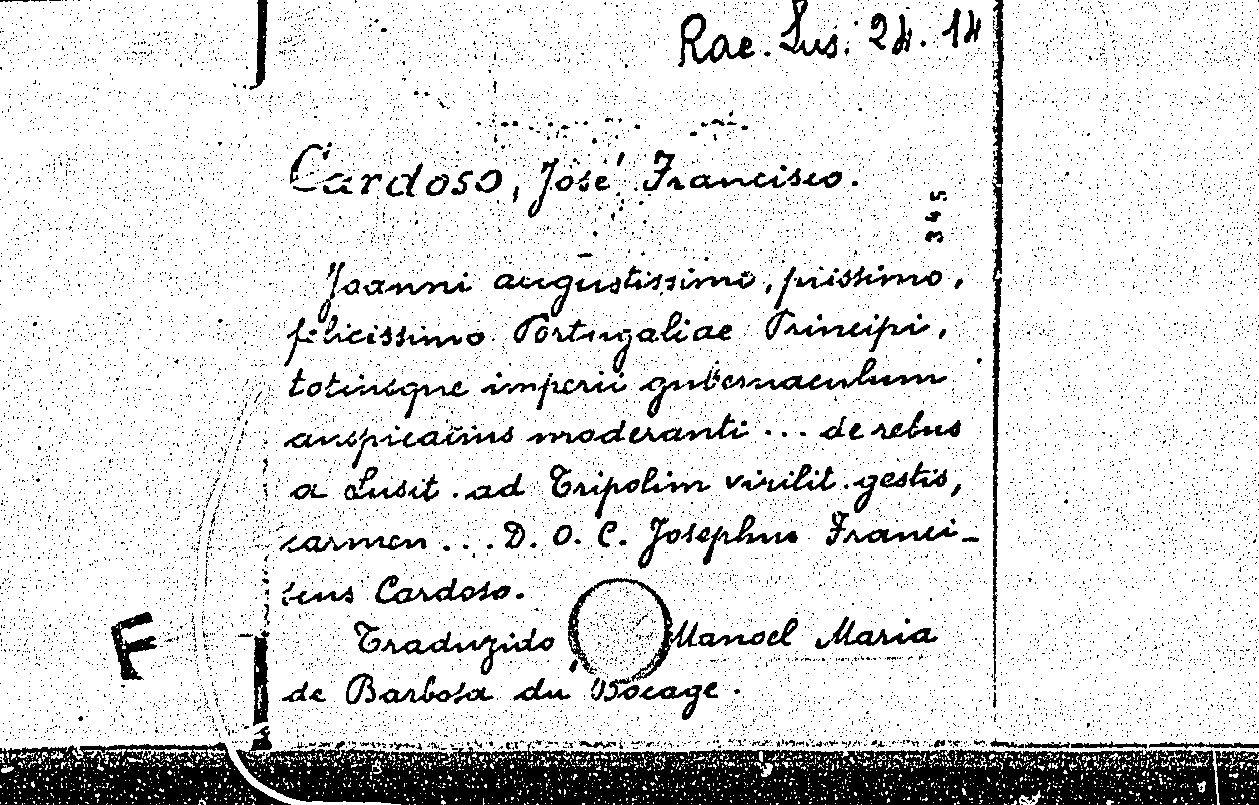 Rae. Lus: 24. 14
Cardoso, José Francisco.
345
Joanni augustissimo, piissimo,
felicissimo Portugaliae Principi,
totiusque imperii gubernaculum
auspicatius moderanti ... de rebus
a Lusit. ad Tripolim virilit. gestis,
carmen ... D. O. C. Josephus Franci-
scus Cardoso.
Traduzido Manoel Maria
de Barbosa du Bocage.
F